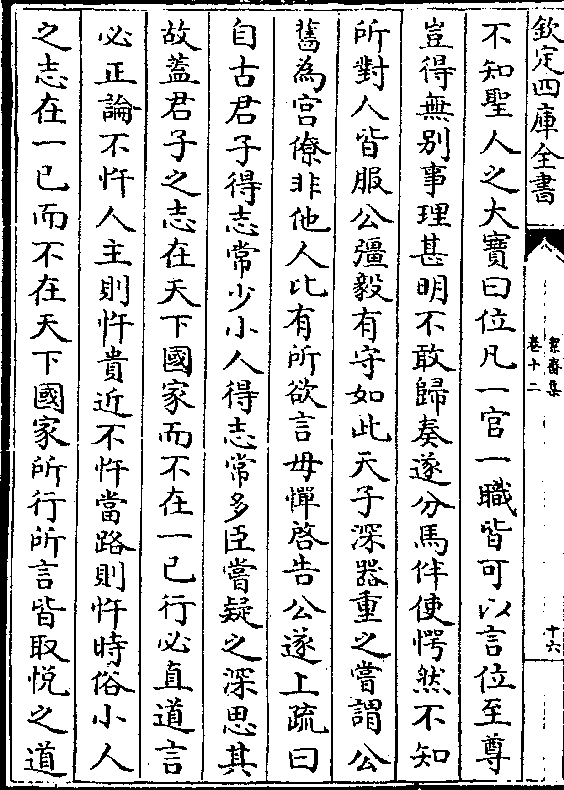 欽定四庫全書
絜齋集
卷十二
十六
不知聖人之大寳曰位凡一官一職皆可以言位至尊
豈得無别事理甚明不敢歸奏遂分馬伴使愕然不知
所對人皆服公彊毅有守如此天子深器重之嘗謂公
舊為宫僚非他人比有所欲言毋憚啓告公遂上疏曰
自古君子得志常少小人得志常多臣嘗疑之深思其
故葢君子之志在天下國家而不在一己行必直道言
必正論不忤人主則忤貴近不忤當路則忤時俗小人
之志在一己而不在天下國家所行所言皆取悦之道